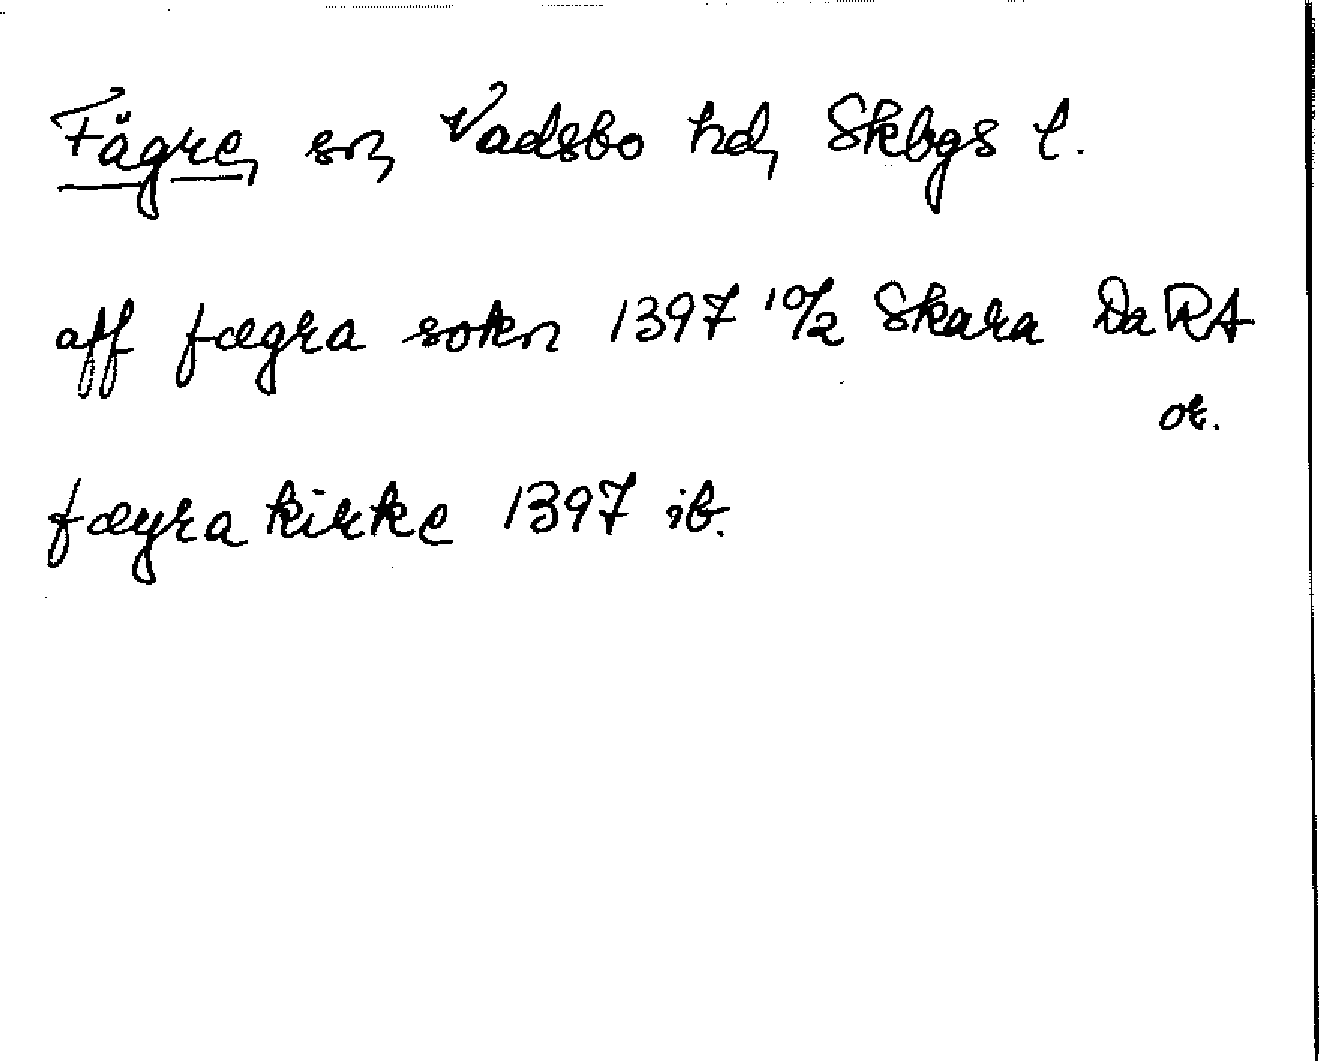 Fägre, sn, Vadsbo hd, Skbgs l.
aff fægra sokn 1397 10/2 Skara DaRA
or.
fægra kirke 1397 ib.